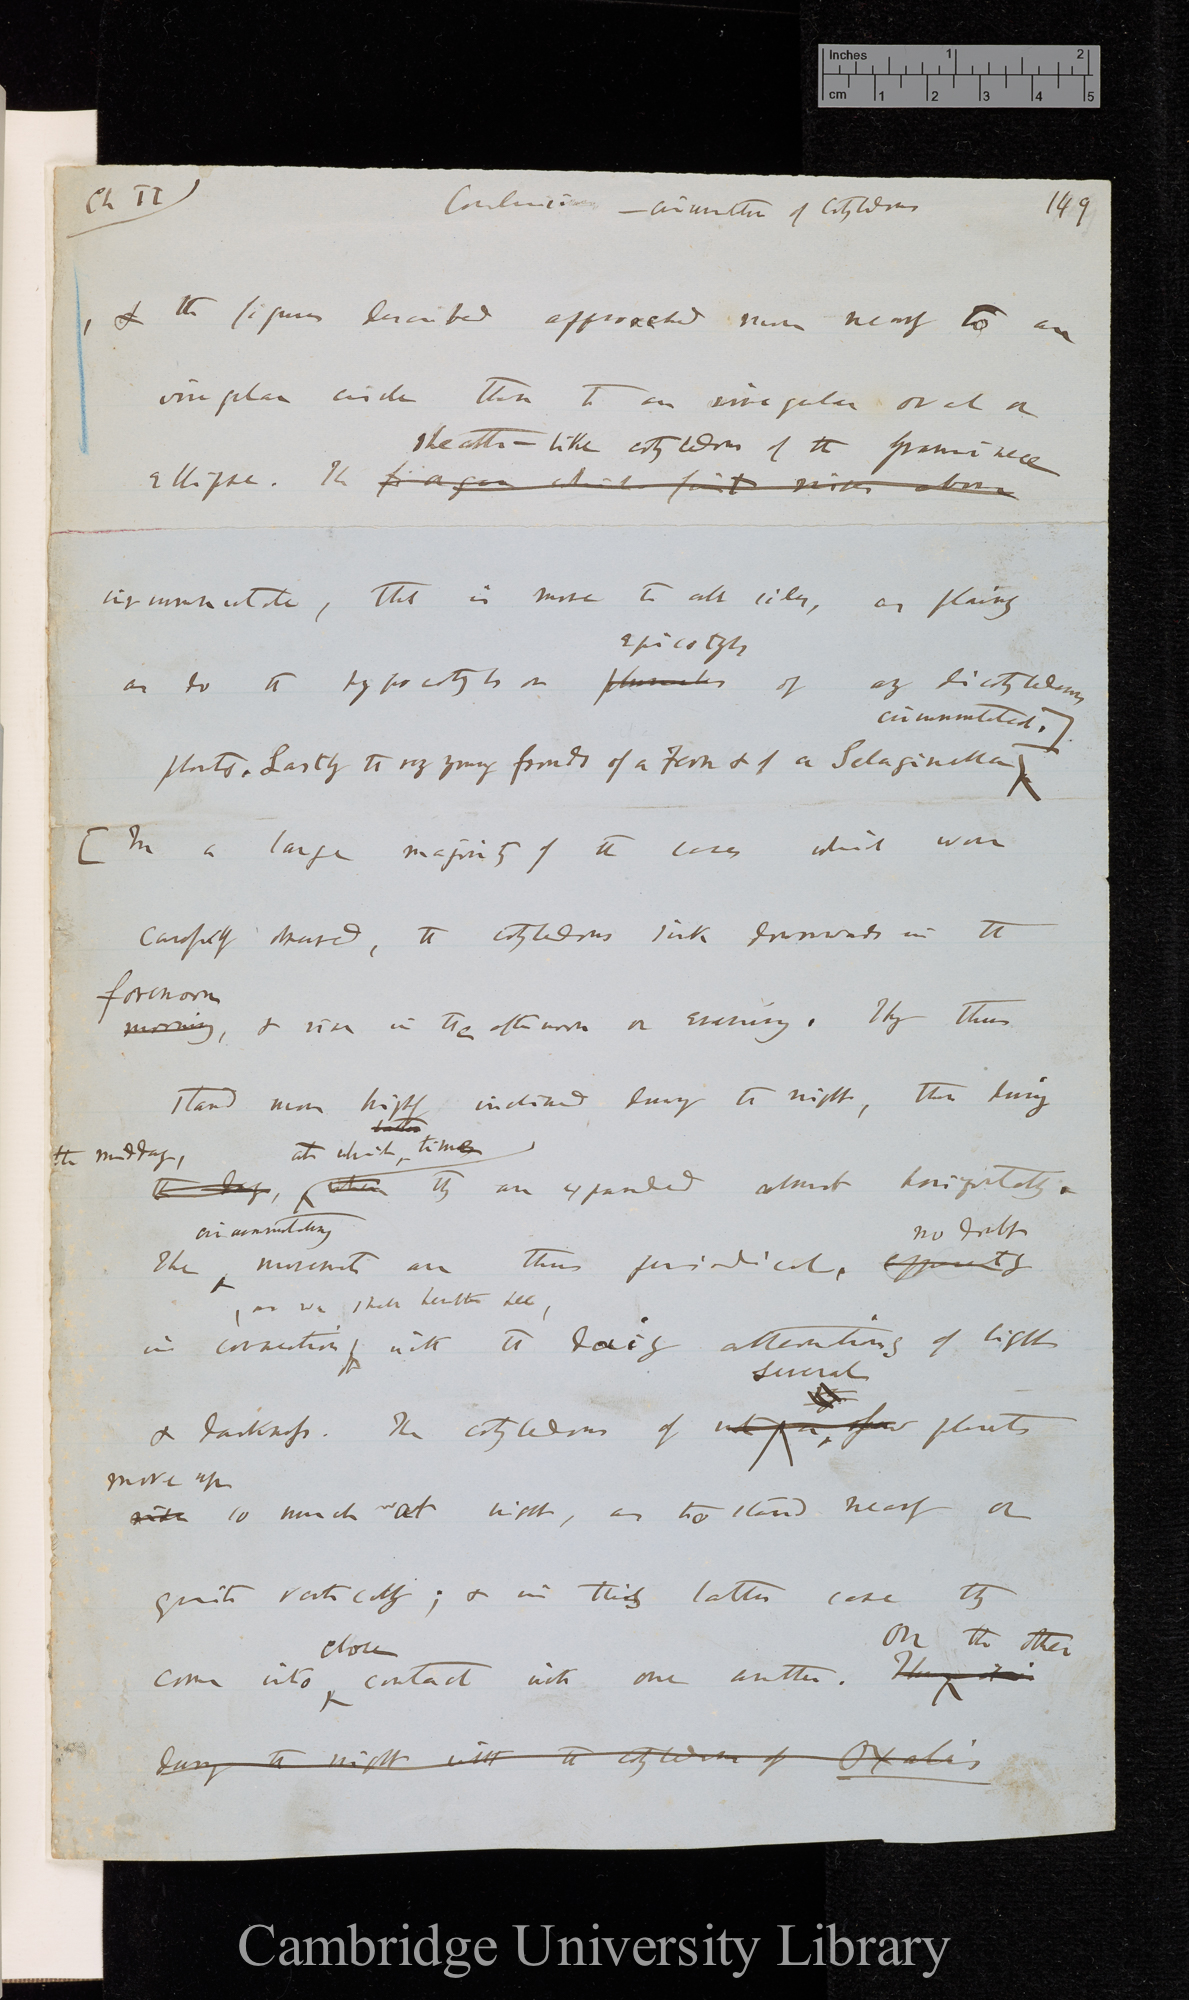 Inches 1 2
cm 1 2 3 4 5
Ch II
Conclusion — circumnutation of cotyledons 149
, & the figures described approached more nearly to an
irregular circle than to an irregular oval or
sheath-like cotyledons of the Gramineae
ellipse. The
circumnutate, that is move to all sides, as plainly
epicotyls
as do the hypocotyls or plumules of any dicotyledons
circumnutated.]
plants. Lastly the very young fronds of a Fern & of a Selaginella
[In a large majority of the cases which were
carefully observed, the cotyledons sink downwards in the
forenoon
morning, & rise in the afternoon or evening. They thus
stand more highly inclined during the night, than during
latter
the midday, at which time
the day, when they are expanded almost horizontally.
circumnutating no doubt
The movements are thus periodical, apparently
, as we shall hereafter see,
in connection with the daily alternations of light
several
& darkness. The cotyledons of not a few plants
move up
rise so much at night, as to stand nearly or
quite vertically; & in this latter case they
close On the other
come into contact with one another.
during the night with the cotyledons of Oxalis
Cambridge University Library